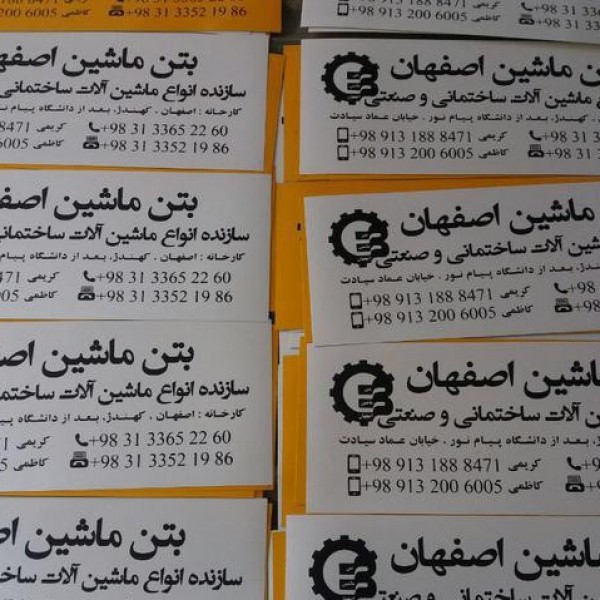 8471 کریمی +98 31 3365 22 60
+98 31 3352 19 86 کاظمی 6005
+98 913 188 8471 کریمی
+98 913 200 6005 کاظمی
بتن ماشین
سازنده انواع ماشین آلات ساختمانی
کارخانه : اصفهان ، کهندژ، بعد از دانشگاه پیام نور
8471 کریمی +98 31 3365 22 60
6005 کاظمی +98 31 3352 19 86
ماشین اصفهان
ماشین آلات ساختمانی و صنعتی
کهندژ، بعد از دانشگاه پیام نور ، خیابان عماد سیادت
+98 913 188 8471 کریمی +98 31
+98 913 200 6005 کاظمی +98 31
بتن ماشین
سازنده انواع ماشین آلات ساختمانی
کارخانه : اصفهان ، کهندژ، بعد از دانشگاه پیام
471 کریمی +98 31 3365 22 60
005 کاظمی +98 31 3352 19 86
ماشین اصفهان
آلات ساختمانی و صنعتی
بعد از دانشگاه پیام نور ، خیابان عماد سیادت
+98 913 188 8471 کریمی +98
+98 913 200 6005 کاظمی +98
بتن ماشین
سازنده انواع ماشین آلات ساختمانی
کارخانه : اصفهان ، کهندژ، بعد از دانشگاه پیام
کریمی +98 31 3365 22 60
کاظمی +98 31 3352 19 86
ماشین اصفهان
آلات ساختمانی و صنعتی
بعد از دانشگاه پیام نور ، خیابان عماد سیادت
+98 913 188 8471 کریمی
+98 913 200 6005 کاظمی
بتن ماشین
سازنده انواع ماشین آلات
ماشین اصفهان
آلات ساختمانی و صنعتی